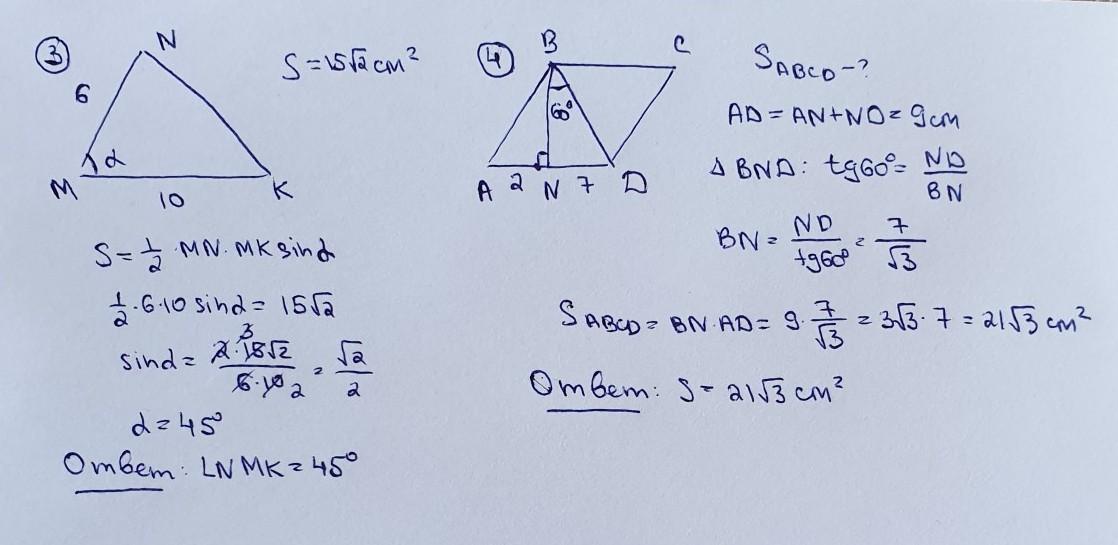 ③ N S = 15√2 cm²
6
α
M 10 K
S = 1/2 · MN · MK sin α
1/2 · 6 · 10 sin α = 15√2
3
sin α = 2 · 15√2 / 6 · 10 2 = √2/2
α = 45°
Ответ: ∠NMK = 45°
④ B C
60°
A 2 N 7 D
S ABCD - ?
AD = AN + ND = 9 cm
Δ BND: tg60° = ND/BN
BN = ND/tg60° = 7/√3
S ABCD = BN · AD = 9 · 7/√3 = 3√3 · 7 = 21√3 cm²
Ответ: S = 21√3 cm²